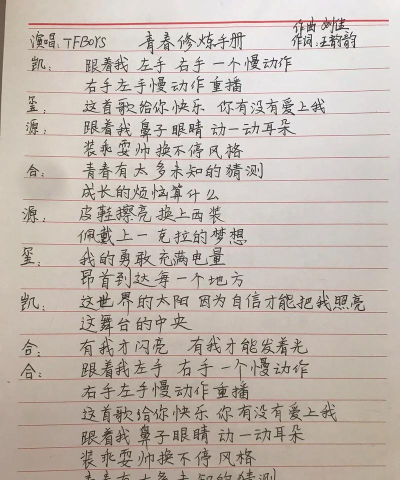 作曲:刘佳
演唱:TFBOYS 青春修炼手册 作词:王韵韵
凯: 跟着我 左手 右手 一个慢动作
右手左手慢动作重播
玺: 这首歌给你快乐 你有没有爱上我
源: 跟着我 鼻子 眼睛 动一动耳朵
装乖耍帅换不停风格
合: 青春有太多未知的猜测
成长的烦恼算什么
源: 皮鞋擦亮 换上西装
佩戴上一克拉的梦想
玺: 我的勇敢充满电量
昂首到达每一个地方
凯: 这世界的太阳 因为自信才能把我照亮
这舞台的中央
合: 有我才闪亮 有我才能发着光
合: 跟着我左手 右手 一个慢动作
右手左手慢动作重播
这首歌给你快乐 你有没有爱上我
跟着我 鼻子眼睛 动一动耳朵
装乖耍帅换不停风格
青春有太多未知的猜测